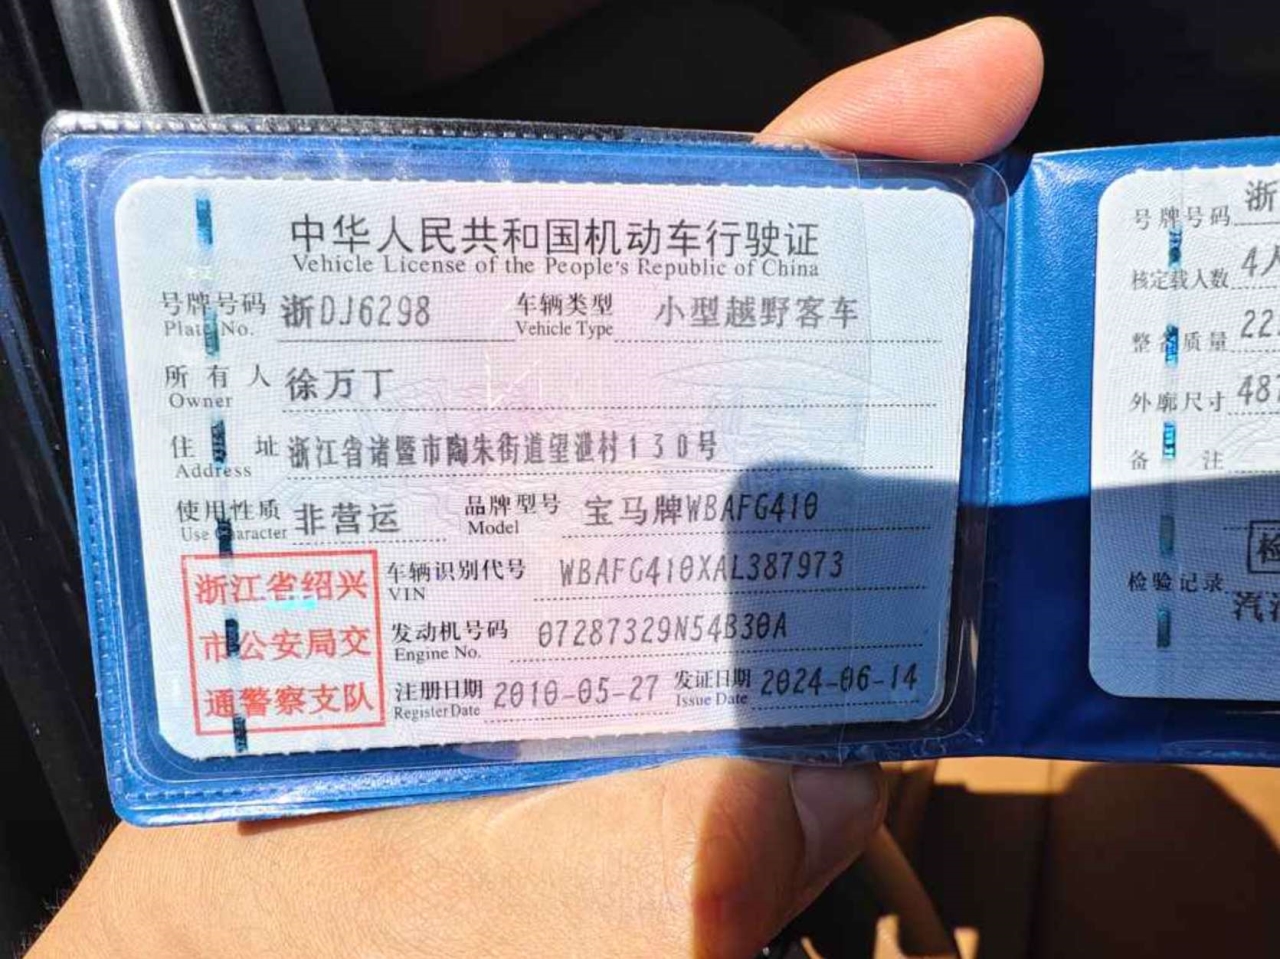 中华人民共和国机动车行驶证
Vehicle License of the People's Republic of China
号牌号码 浙DJ6298 车辆类型 小型越野客车
Plate No. Vehicle Type
所有人 徐万丁
Owner
住址 浙江省诸暨市陶朱街道望泄村130号
Address
使用性质 非营运 品牌型号 宝马牌WBAFG410
Use Character Model
浙江省绍兴
市公安局交
通警察支队
车辆识别代号 WBAFG410XAL387973
VIN
发动机号码 07287329N54B30A
Engine No.
注册日期 2010-05-27 发证日期 2024-06-14
Register Date Issue Date
号牌号码 浙
核定载人数 4人
整备质量 22
外廓尺寸 487
备注
检验记录